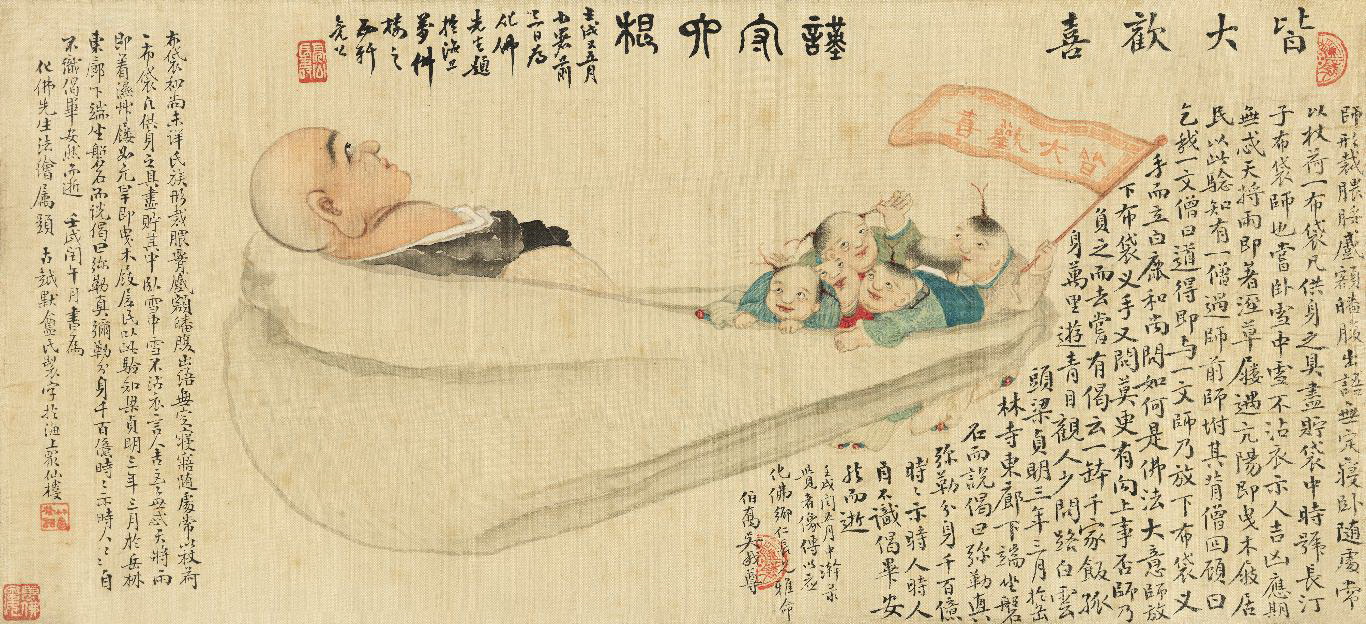 皆大歡喜
謹守六根
壬戌又五月
七罢前
三日為
化佛
先生題
於滬上
夢仲
樓之
西軒
克公
皆大歡喜
師形裁腲脮蹙額皤腹出語無定寢臥隨處常
以杖荷一布袋凡供身之具盡貯袋中時號長汀
子布袋師也嘗卧雪中雪不沾衣示人吉凶應期
無忒天將雨即著溼草屨遇亢陽即曳木屐居
民以此驗知有一僧過師前師拊其背僧回顧曰
乞我一文僧曰道得即与一文師乃放下布袋叉
手而立白鹿和尚問如何是佛法大意師放
下布袋义手又問莫更有向上事否師乃
負之而去嘗有偈云一鉢千家飯孤
身萬里遊青目觀人少問路白雲
頭梁貞明三年三月於岳
林寺東廊下端坐磐
石而說偈曰弥勒真
弥勒分身千百億
時時示時人時人
自不識偈畢安
然而逝
壬戌閏五月中澣录
覺者像傳以應
化佛鄉仁長兄雅命
伯萬吳
布袋和尚未詳氏族形裁腲脮蹙額皤腹出語無定寢寤隨處常以杖荷
一布袋凡供身之具盡貯其中臥雪中雪不沾衣言人吉凶無忒天將雨
即着濕艸屨如亢旱即曳木屐居民以此驗知梁貞明三年三月於岳林
東廊下端坐磐石而說偈曰弥勒真彌勒分身千百億時時示時人人自
不識偈畢安然而逝 壬戌閏午月書為
化佛先生法繪屬題 古越默盦氏製字於海上聚仙樓